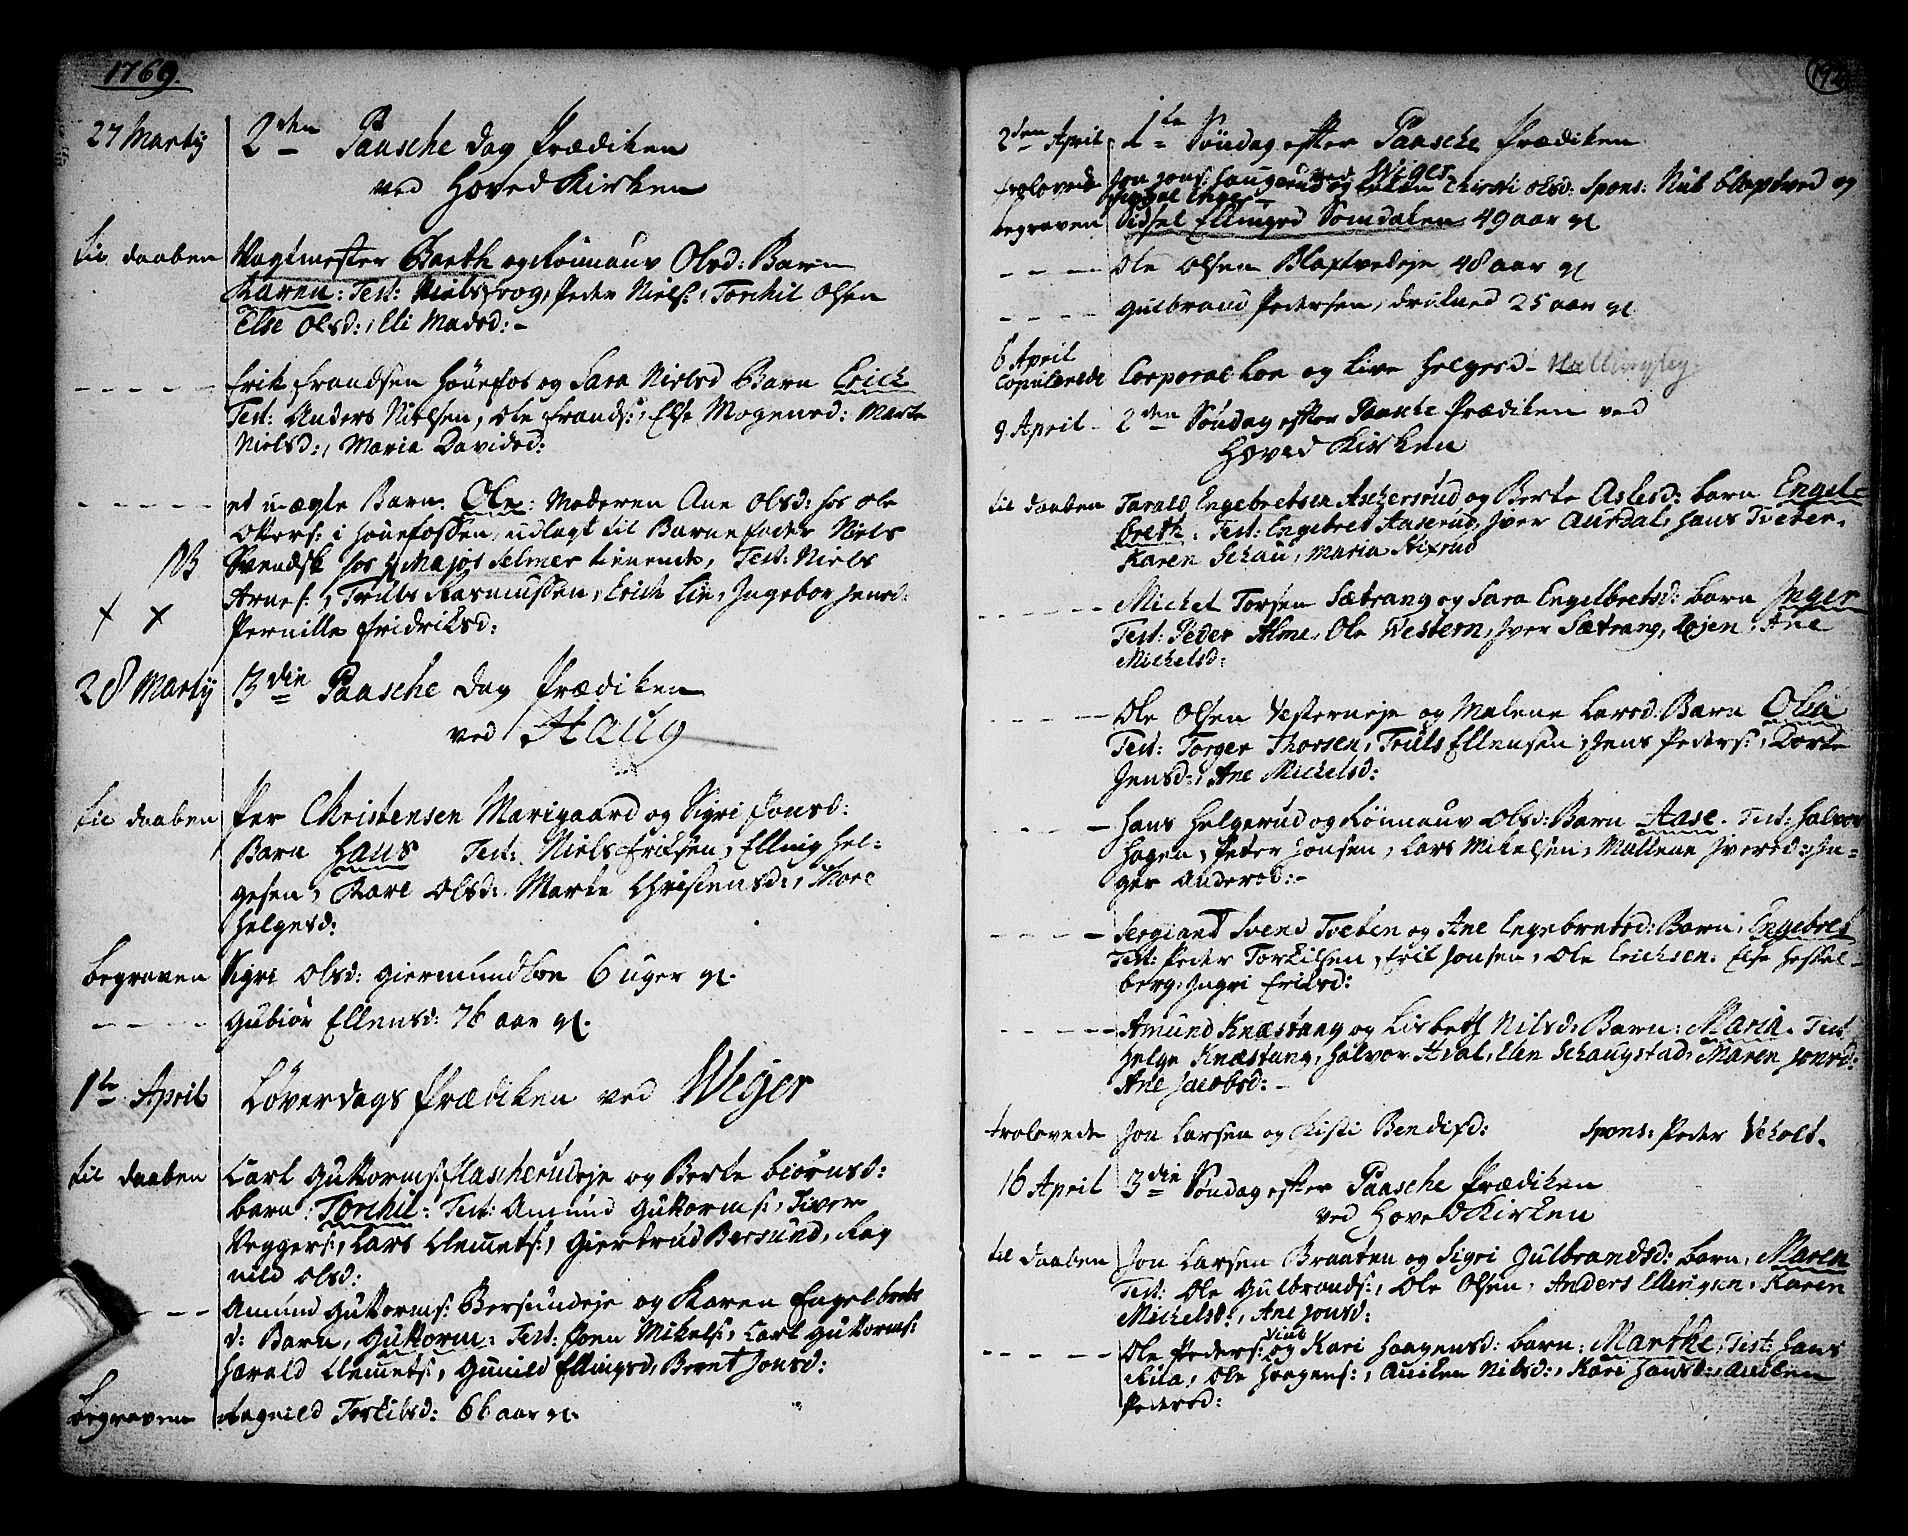 1769.
27 Martij 2den Paasche dag Prædiken
ved Hoved Kirken
til daaben Vagtmester Barth og Rønnauv Olsd: Barn
Karen: Test: Niels frog, Peder Niels:, Torchil Olsen
Else Olsd:, Eli Madsd: -
- - - - - Erik frandsen Hønefos og Sara Nielsd Barn Erich
Test: Anders Nielsen, Ole frands:, Else Mogensd: Marte
Nielsd:, Maria Davidsd:
- - - - - et uægte Barn. Ole: Moderen Ane Olsd: hos Ole
Olsens: i Hønefossen, udlagt til Barnefader Niels
NB Svendsk hos H Major Selmer tienende, Test: Niels
Arnes:, Truls Rasmussen, Erich Lie, Ingebor Jensd:
+ + Pernille Fridriksd:
28 Martij 3die Paasche dag Prædiken
ved Haug
til daaben Per Christensen Marigaard og Sigri Jonsd:
Barn Hans Test: Niels Eriksen, Elling Hel-
gesen, Kare Olsd: Marte Christensd:, Thore
Helgesd:
begraven Sigri Olsd: Giermundboe 6 uger gl.
- - - - Gubiør Ellensd: 76 aar gl.
1te April Løverdags Prædiken ved Weger
til daaben Carl Guttorms: Flascherudeje og Berte Biørnsd:
barn: Torchil: Test: Amund Guttorms:, Siver
Veggers:, Lars Clemets:, Giertrud Bersund, Rag
nild Olsd:
- - Amund Guttorms: Bersundeje og Karen Engelbrets
d: Barn, Guttorm: Test: Joen Mikels:, Carl Guttorms:
Harald Clemets:, Gunild Ellingsd, Bernt Jonsd:
begraven Ragnild Torkilsd: 66 aar gl.
2den April 1te Søndag efter Paasche Prædiken
ved Weger
trolovede Jon Jons: Haugerud og Kirsti Olsd: Spons: og
begraven Sidsel Ellingsd Somdalen 49 aar gl
- - - - Ole Olsen Blaxtvedeje 48 aar gl
- - - - Gulbrand Pedersen, drukned 25 aar gl
6 April
Copulerede Corporal Loe og Live Helgesd -
9 April - 2den Søndag efter Paasche Prædiken ved
Hoved Kirken
til daaben Tarald Engebretsen Aschersrud og Berte Aslesd: barn Engel-
breth: Test: Engebret Aaserud, Iver Aurdal, Hans Tveter,
Karen Schau, Maria Rixrud
- - - - - Michel Torsen Sætrang og Sara Engelbretsd: barn Inger
Test: Peder Alme, Ole Western, Iver Sætrang, Røjen, Ane
Michelsd:
- - - - - Ole Olsen Vesterneje og Malene Larsd: Barn Olia
Test: Torger Thorsen, Truls Ellensen, Jens Peders:, Dorte
Jensd:, Ane Michelsd:
- - - - Hans Helgerud og Rønnauv Olsd: Barn Aase. Test: Halvor
Hagen, Peter Jonsen, Lars Mikelsen, Mallene Iversd: In-
ger Andersd: -
- - - - - Sergeant Svend Tveten og Ane Engebretsd: Barn, Engebret
Test: Peder Torkilsen, Erik Jonsen, Ole Erichsen. Else Hessel-
berg, Ingri Eriksd:
- - - - - Amund Knæstang og Lisbeth Nilsd: Barn: Marin. Test
Helge Knæstang, Halvor Hval, Elen Schaugstad, Maren Jonsd:
Ane Jacobsd: -
trolovede Jon Larsen og Kisti Bendixd: Spons: Peder Veholt.
16 April 3die Søndag efter Paasche Prædiken
ved Hoved Kirken
til daaben Jon Larsen Braaten og Sigri Gulbrandsd: barn, Maren
Test: Ole Gulbrands:, Ole Olsen, Anders Ellingsen, Karen
Michelsd:, Ane Jonsd:
- - - - - Ole Peders: og Kari Haagensd: barn: Marthe, Test: Hans
Rua, Ole Haagens:, Aulken Nilsd:, Kari Hansd:, Aulken
Pedersd: